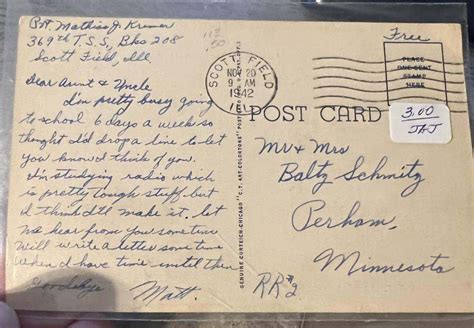 Pvt. Mathias J. Kremer
369th T.S.S., Bks 208
Scott Field, Ill
Dear Aunt & Uncle
I'm pretty busy going
to school 6 days a week so
thought I'd drop a line to let
you know I think of you.
I'm studying radio which
is pretty tough stuff but
I think I'll make it. let
me hear from you sometime
Will write a letter some time
when I have time until then
Goodbye
Matt.
113
.50
SCOTT FIELD
NOV 20
9 AM
1942
ILL.
Free
PLACE
ONE CENT
STAMP
HERE
POST CARD
3.00
JAJ
GENUINE CURTEICH-CHICAGO "C.T. ART-COLORTONE" POST CARD
Mr & Mrs
Baltz Schmitz
Perham,
Minnesota
RR#2